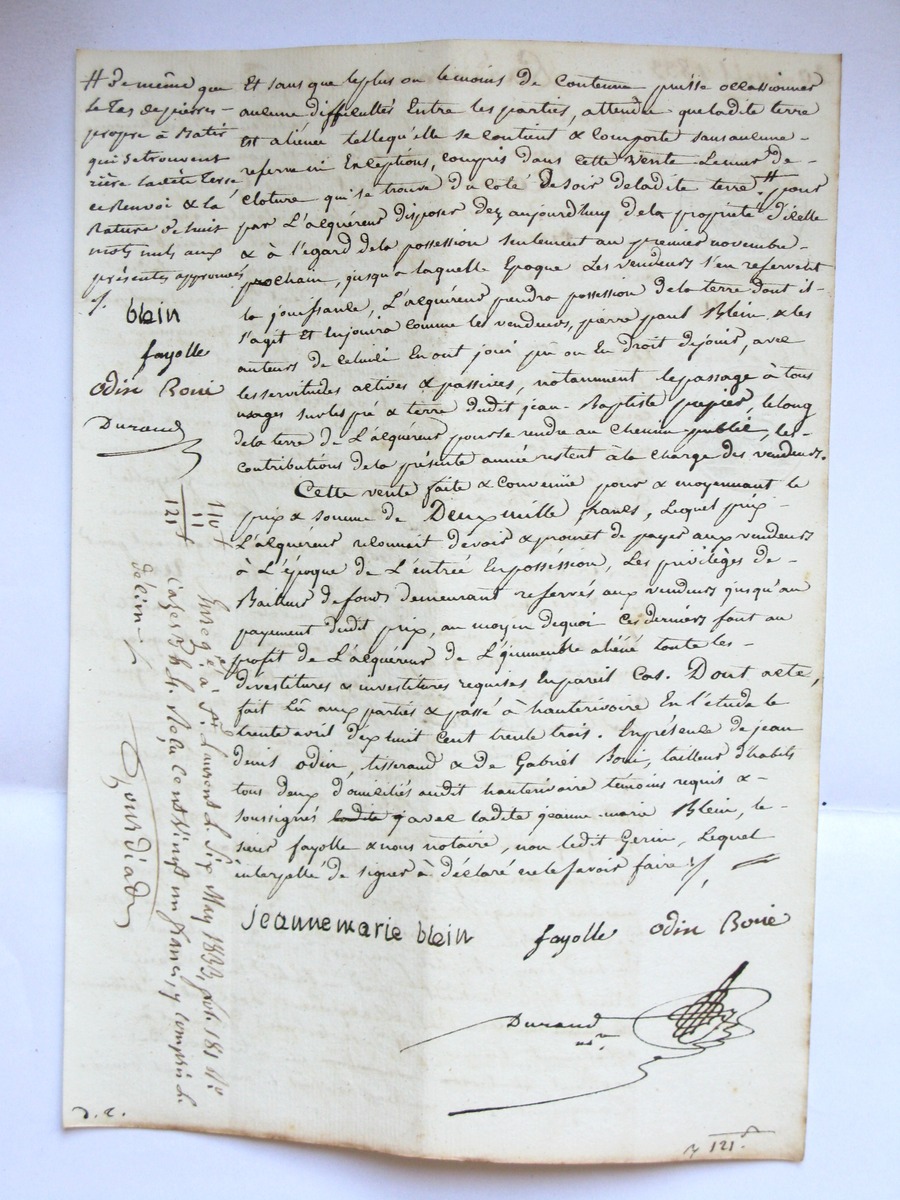 # de même que
le tas de pierres -
propre à Batir
qui se trouvent
rière ladite terre
ce Renvoi & la
Rature de huit
mots nuls aux
présentes approuvés
blein
fayolle
odin Boui
Durand
Et sans que le plus ou le moins de Contenue puisse occasionner
aucune difficultés Entre les parties, attendu que ladite terre
Est aliénée telle qu'elle se contient & comporte sans aucune -
reserve ni Exceptions, compris dans cette vente Le mur de -
cloture qui se trouve du coté de soir de ladite terre # pour
par L'acquéreur disposer dez aujourdhuy de la propriété d'icelle
& à l'égard de la possession seulement au premier novembre -
prochain, jusqu'a laquelle Epoque Les vendeurs s'en reservent
la jouissance, L'acquéreur prendra possession de la terre dont il -
s'agit Et En jouira comme les vendeurs, pierre paul Blein & les
auteurs de celui ci En ont joui pu ou En droit de jouir, avec
les servitudes actives & passives, notamment le passage à tous
usages sur les pré & terre dudit jean - Baptiste papier, le long
de la terre de L'acquéreur pour se rendre au chemin public, les -
contributions de la présente année restent à la charge des vendeurs.
Cette vente faite & convenue pour & moyennant le
prix & somme de Deux mille francs, Lequel prix -
L'acquéreur reconnait devoir & promet de payer aux vendeurs
à L'époque de L'entrée En possession, Les privilèges de -
Bailleur de fonds demeurant reservés aux vendeurs jusqu'au
payement dudit prix, au moyen de quoi ces derniers font au
profit de L'acquéreur de L'immeuble aliéné toute les -
devestitures & investitures requises En pareil Cas. Dont acte,
fait Lû aux parties & passé à hauterivoire En l'étude le
trente avril dix huit cent trente trois. En présence de jean
denis odin, tisserand & de Gabriel Boui, tailleur d'habits
tous deux domiciliés audit hauterivoire temoins requis & -
soussignés ladite avec ladite jeanne marie Blein, le -
sieur fayolle & nous notaire, non ledit Gerin, Lequel
interpellé de signer à déclaré ne le savoir faire
jeanne marie blein fayolle odin Boui
Durand
nre
110 f
11
121 f
Enregé à St Laurent le six May 1833, fol. 181 Ro
Cases Reçu cent vingt un francs, y compris le
décime
121